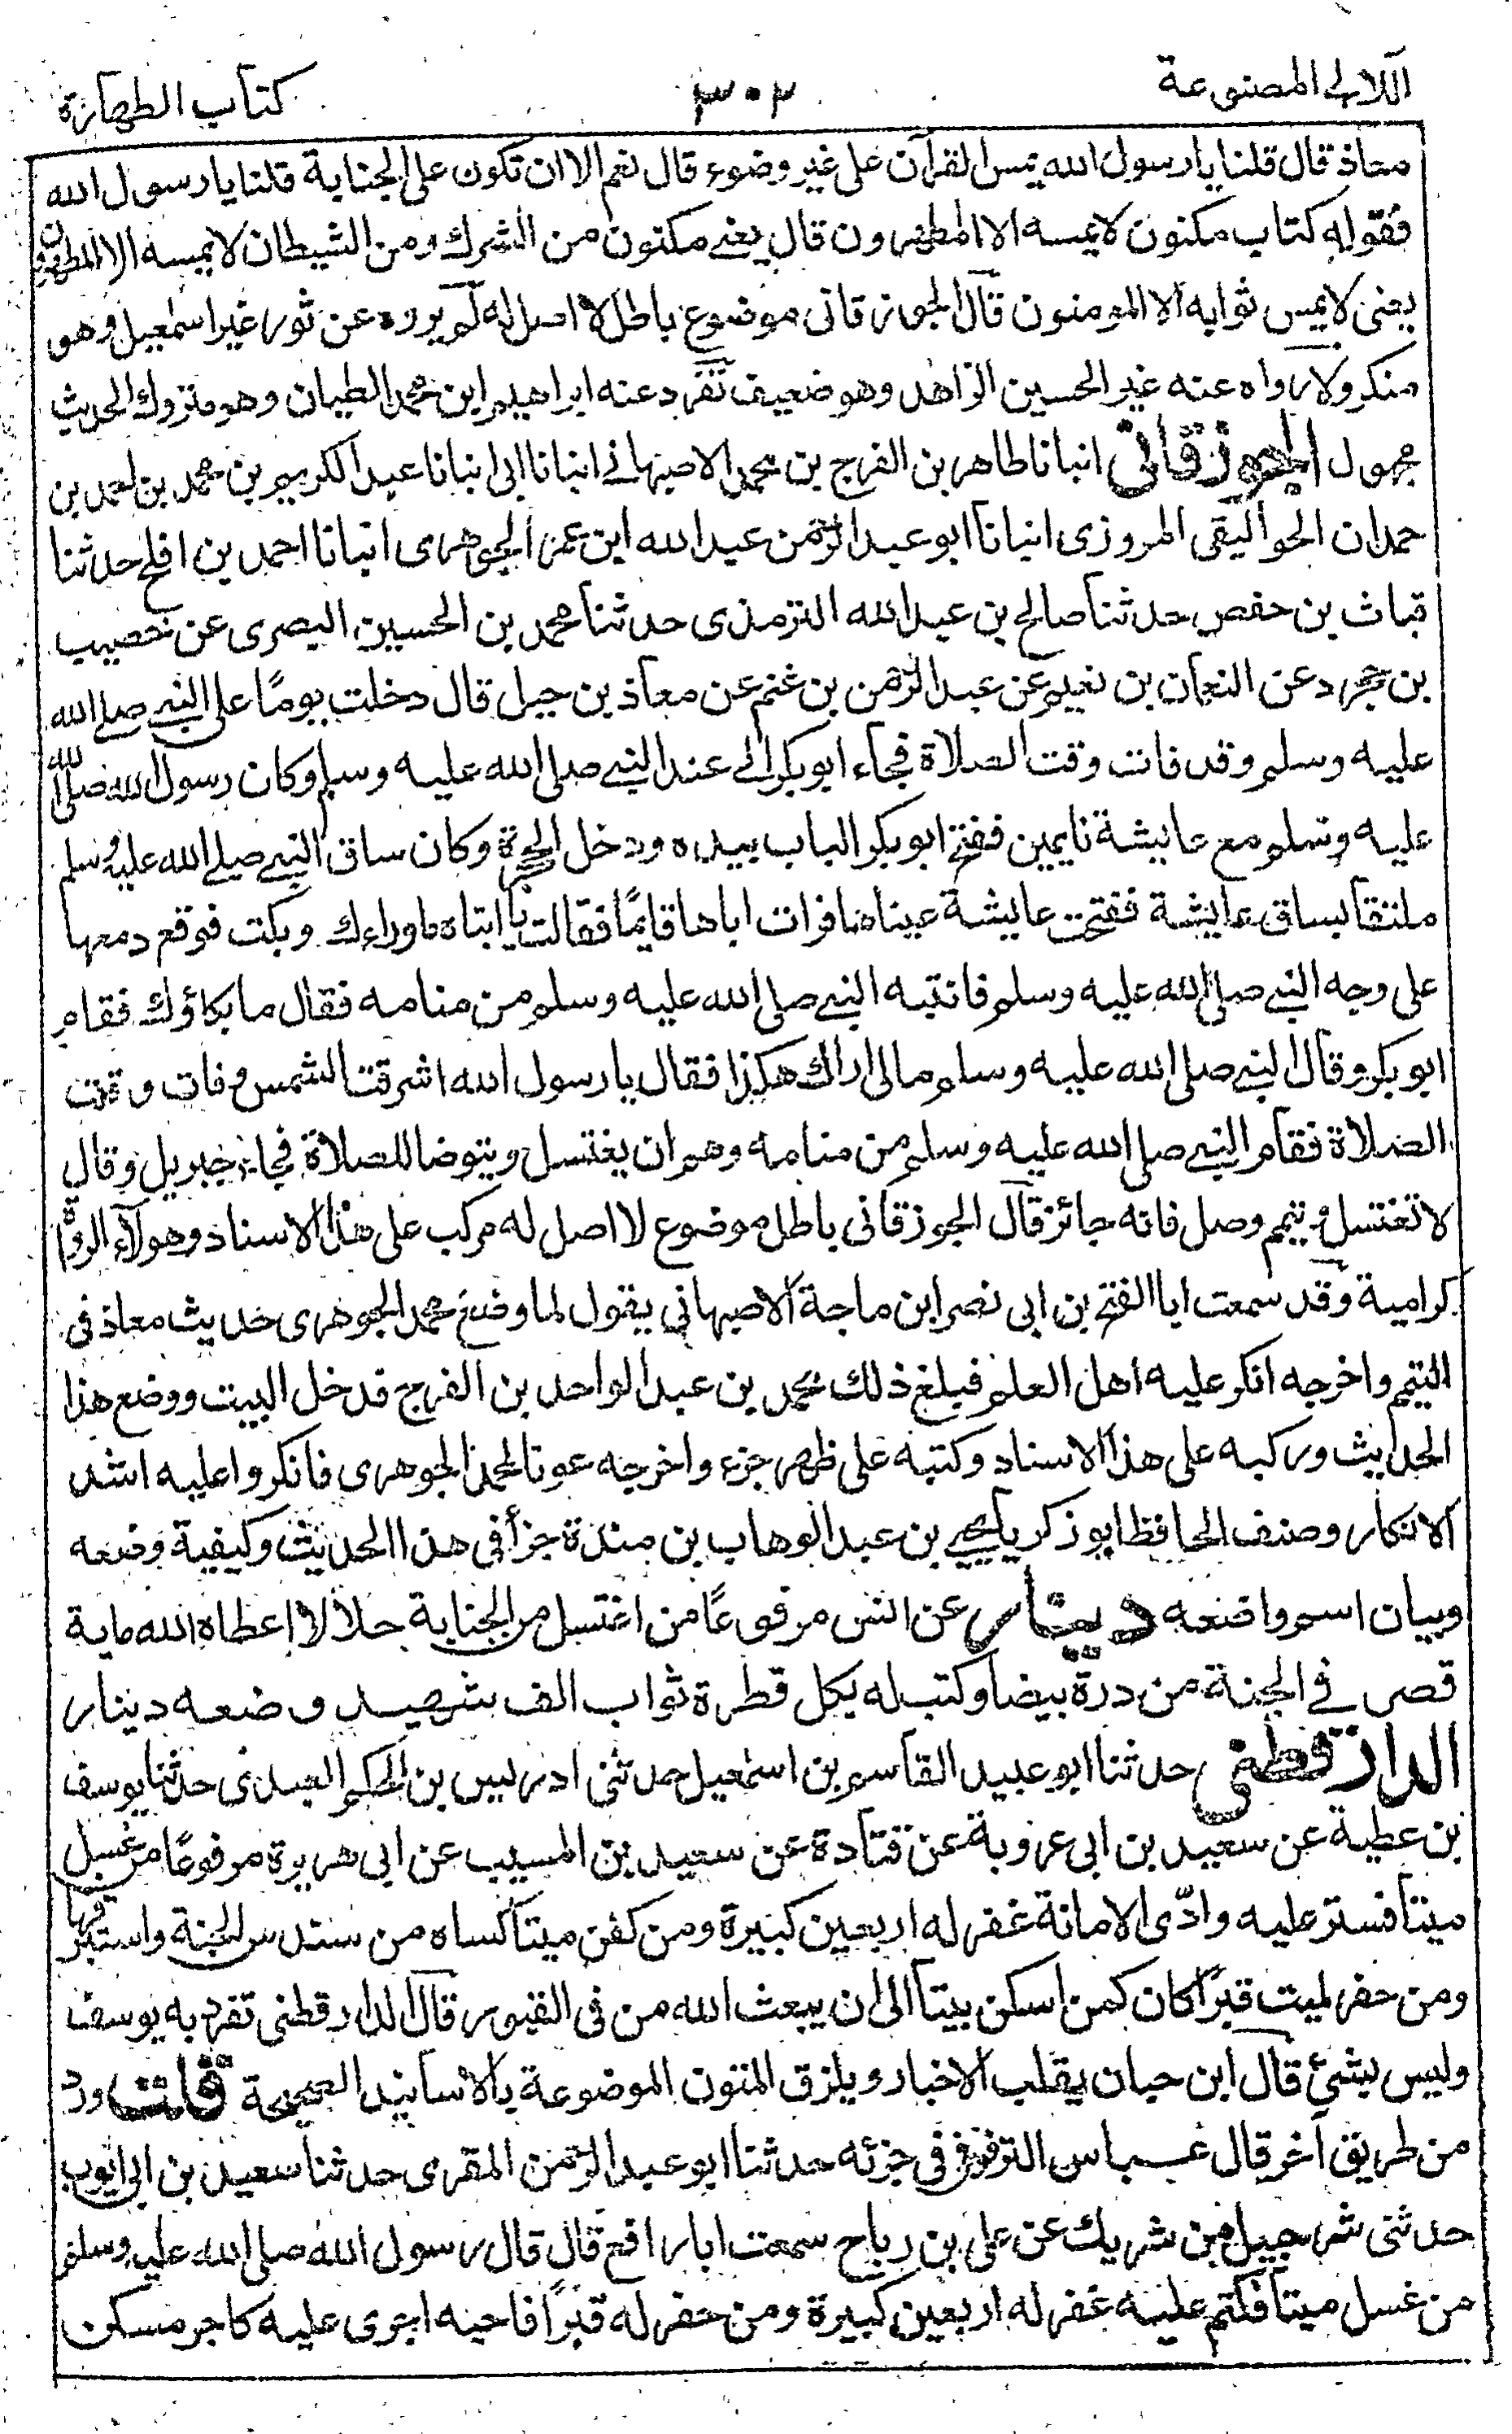 اللالي المصنوعة
٣٠٢
كتاب الطهارة
معاذ قال قلنا يا رسول الله يمس القرآن على غير وضوء قال نعم الا ان تكون على الجنابة قلنا يا رسول الله
فقوله كتاب مكنون لا يمسه الا المطهرون قال يعني مكنون من الشرك ومن الشيطان لا يمسه الا المطهرون
يعني لا يمس ثوابه الا المومنون قال الجوزقاني موضوع باطل لا اصل له لم يروه عن ثور غير اسمعيل وهو
منكر ولا رواه عنه غير الحسين الزاهد وهو ضعيف تفرد عنه ابراهيم ابن محمد الطيان وهو متروك الحديث
مجهول الجوزقاني انبانا طاهر بن الفرج بن محمد الاصبهاني انبانا ابي انبانا عبد الكريم بن محمد بن احمد بن
حمدان الجواليقي المروزي انبانا ابو عبد الرحمن عبد الله ابن عمر الجوهري انبانا احمد بن افلح حدثنا
قباث بن حفص حدثنا صالح بن عبد الله الترمذي حدثنا محمد بن الحسين البصري عن خصيب
بن جحرد عن النعمان بن نعيم عن عبد الرحمن بن غنم عن معاذ بن جبل قال دخلت يوما على النبي صلى الله
عليه وسلم وقد فات وقت الصلاة فجاء ابو بكر الى عند النبي صلى الله عليه وسلم وكان رسول الله صلى الله
عليه وسلم مع عايشة نايمين ففتح ابو بكر الباب بيده ودخل الحجرة وكان ساق النبي صلى الله عليه وسلم
ملتفا بساق عايشة ففتحت عايشة عيناها فرات اباها قايما فقالت يا ابتاه ما وراءك وبكت فوقع دمعها
على وجه النبي صلى الله عليه وسلم فانتبه النبي صلى الله عليه وسلم من منامه فقال ما بكاؤك فقام
ابو بكر وقال النبي صلى الله عليه وسلم مالى اراك هكذا فقال يا رسول الله اشرقت الشمس وفات وقت
الصلاة فقام النبي صلى الله عليه وسلم من منامه وهم ان يغتسل ويتوضا للصلاة فجاء جبريل وقال
لا تغتسل وتيمم وصل فانه جائز قال الجوزقاني باطل موضوع لا اصل له مركب على هذا الاسناد وهولاء الرواة
كرامية وقد سمعت ابا الفتح بن ابي نصر ابن ماجة الاصبهاني يقول لما وضع محمد الجوهري حديث معاذ في
التيمم واخرجه انكر عليه اهل العلم فبلغ ذلك محمد بن عبد الواحد بن الفرج فدخل البيت ووضع هذا
الحديث وركبه على هذا الاسناد وكتبه على ظهر جزء واخرجه عونا لمحمد الجوهري فانكروا عليه اشد
الانكار وصنف الحافظ ابو زكريا يحيى بن عبد الوهاب بن مندة جزأ في هذا الحديث وكيفية وضعه
وبيان اسم واضعه دينار عن انس مرفوعًا من اغتسل من الجنابة حلالا اعطاه الله ماية
قصر في الجنة من درة بيضا وكتب له بكل قطرة ثواب الف شهيد وضعه دينار
الدارقطني حدثنا ابو عبيد القاسم بن اسمعيل حدثني ادريس بن الحكم العبدي حدثنا يوسف
بن عطية عن سعيد بن ابي عروبة عن قتادة عن سعيد بن المسيب عن ابي هريرة مرفوعًا من غسل
ميتا فستر عليه وادّى الامانة غفر له اربعين كبيرة ومن كفن ميتا كساه من سندس الجنة واستبرقها
ومن حفر لميت قبرًا كان كمن اسكن بيتا الى ان يبعث الله من في القبور قال الدارقطني تفرد به يوسف
وليس بشئ قال ابن حبان يقلب الاخبار ويلزق المتون الموضوعة بالاسانيد الصحيحة قلت ورد
من طريق آخر قال عباس الترقفي في جزئه حدثنا ابو عبد الرحمن المقري حدثنا سعيد بن ابي ايوب
حدثني شرحبيل بن شريك عن علي بن رباح سمعت ابا رافع قال قال رسول الله صلى الله عليه وسلم
من غسل ميتا فكتم عليه غفر له اربعين كبيرة ومن حفر له قبرًا فاجنه اجرى عليه كاجر مسكن